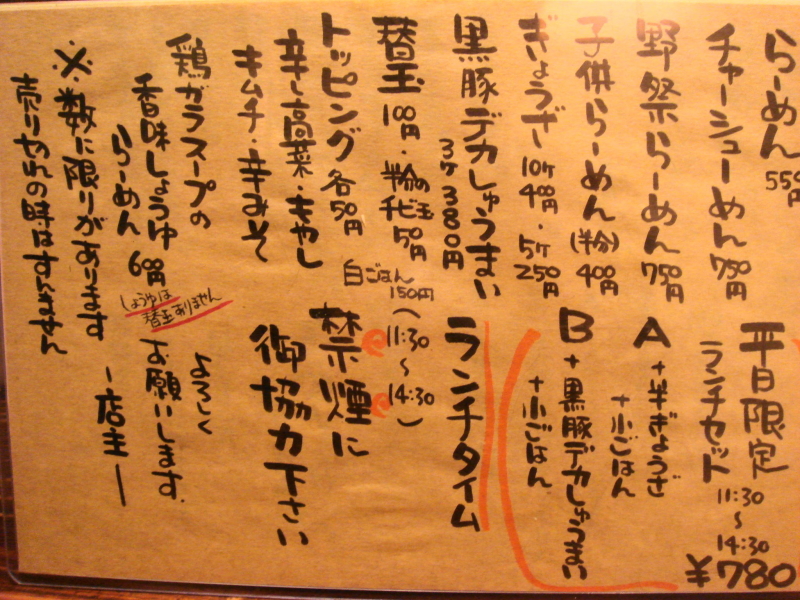 らーめん 550円
チャーシューめん 750円
野祭らーめん 750円
子供らーめん(半分) 400円
ぎょうざ 10ケ 400円・5ケ 250円
黒豚デカしゅうまい
3ケ 380円
替玉 100円・半分の玉 50円
チビ
白ごはん 150円
トッピング 各50円
辛し高菜・もやし
キムチ・辛みそ
鶏ガラスープの
香味しょうゆ
らーめん 600円
しょうゆは
替玉ありません
※数に限りがあります
売り切れの時はすみません
平日限定
ランチセット 11:30～14:30
¥780
A +半ぎょうざ
+小ごはん
B +黒豚デカしゅうまい
+小ごはん
ランチタイム
(11:30～14:30)
禁煙に
御協力下さい
よろしく
お願いします
ー店主ー